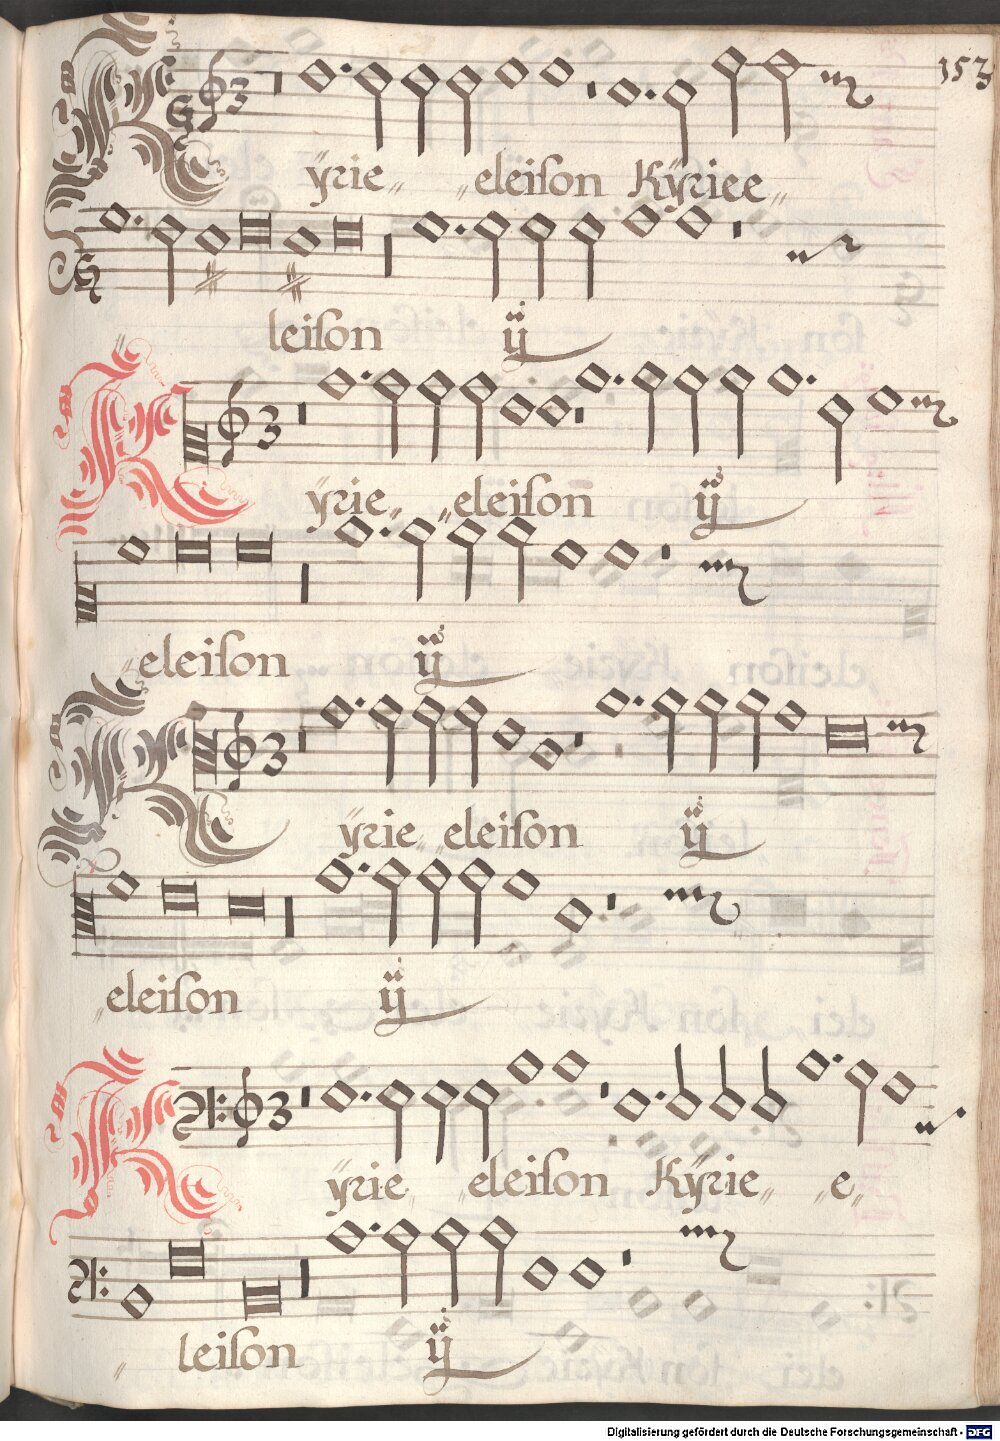 153
Kÿrie eleison Kÿriee
leison ÿ
Kÿrie eleison ÿ
eleison ÿ
Kÿrie eleison ÿ
eleison ÿ
Kÿrie eleison Kÿrie e
leison ÿ
Digitalisierung gefördert durch die Deutsche Forschungsgemeinschaft - DFG